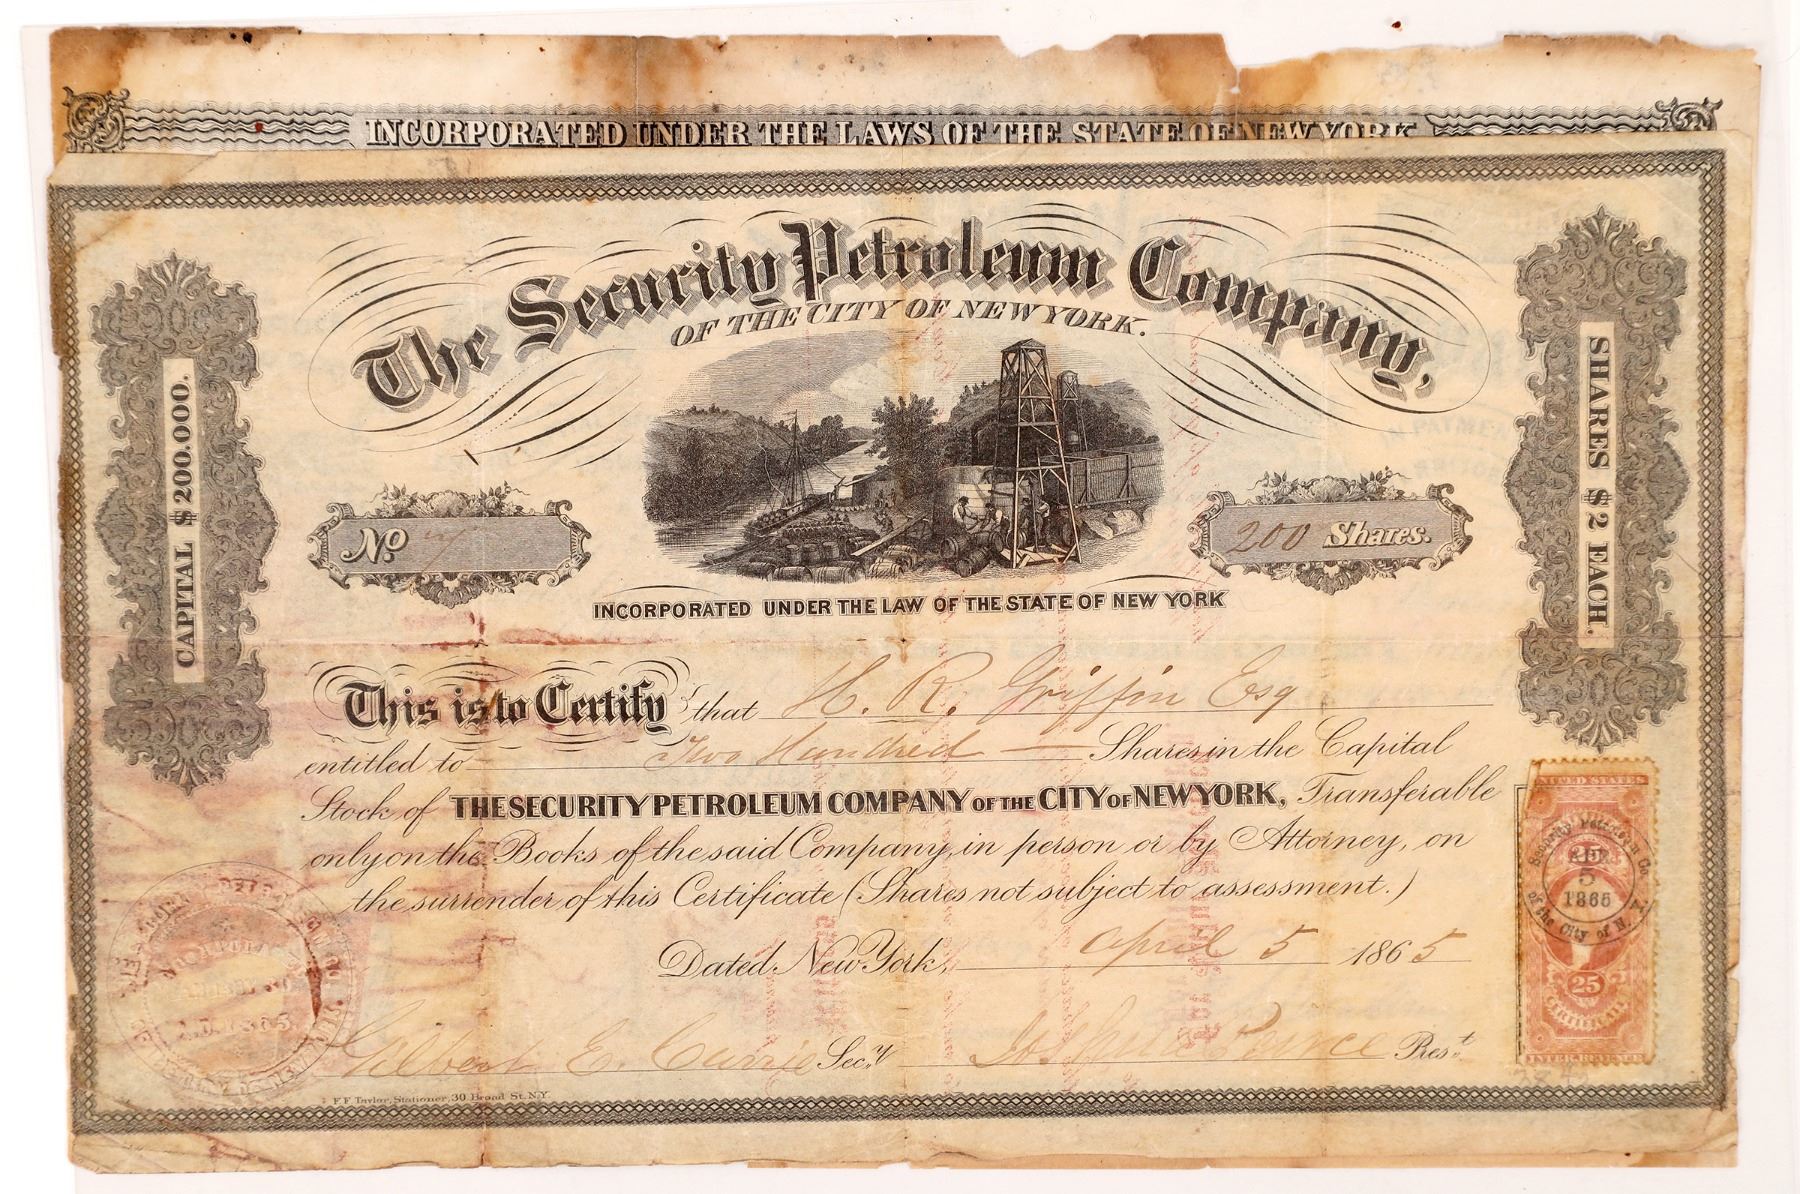 INCORPORATED UNDER THE LAWS OF THE STATE OF NEW YORK
The Security Petroleum Company,
OF THE CITY OF NEW YORK.
CAPITAL $200.000.
SHARES $2 EACH.
No
200 Shares.
INCORPORATED UNDER THE LAW OF THE STATE OF NEW YORK
This is to Certify that H. R. Griffin Esq
entitled to Two Hundred Shares in the Capital
Stock of THE SECURITY PETROLEUM COMPANY OF THE CITY OF NEW YORK, Transferable
only on the Books of the said Company, in person or by Attorney, on
the surrender of this Certificate (Shares not subject to assessment.)
Dated New York, April 5 1865
Gilbert E. Currie Sec.y Pres.t
F.F. Taylor, Stationer, 30 Broad St. N.Y.
UNITED STATES
25
Security Petroleum Co.
APR
5
1865
of the City of N.Y.
25
CERTIFICATE
INTER. REVENUE